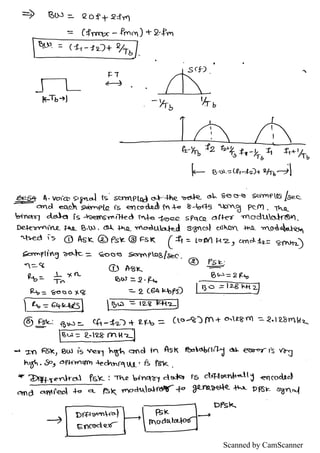 ⇒ BW = 2Δf + 2fm
= (fmax - fmin) + 2fm
BW = (f1-f2) + 2/Tb
FT
S(f)
|←Tb→|
-1/Tb 1/Tb
f2-1/Tb f2 f2+1/Tb f1-1/Tb f1 f1+1/Tb
BW=(f1-f2)+2/Tb
A voice signal is sampled at the rate of 8000 samples/sec
and each sample is encoded into 8-bits using pcm. The
binary data is transmitted into free space after modulation.
Determine the B.W. of the modulated signal when the modulation
used is ① ASK ② PSK ③ FSK (f1 = 10MHz, and f2 = 8MHz)
Sampling rate = 8000 samples/sec.
n=8
① ASK
② PSK:
Rb = 1/Ts × n
BW = 2·Rb
BW=2Rb
Rb = 8000×8
= 2 (64kbps)
BW = 128kHz
Rb = 64kbps
BW = 128kHz
③ FSK: BW = (f1-f2) + 2Rb = (10-8)M + 0.128M = 2.128MHz
BW = 2.128MHz
→ In FSK, BW is very high and in ASK Probability of error is very
high. So, optimum technique is PSK.
* Differential PSK: The binary data is differentially encoded
and applied to a PSK modulator to generate the DPSK signal
Differential
Encoder
PSK
modulator
DPSK
Scanned by CamScanner